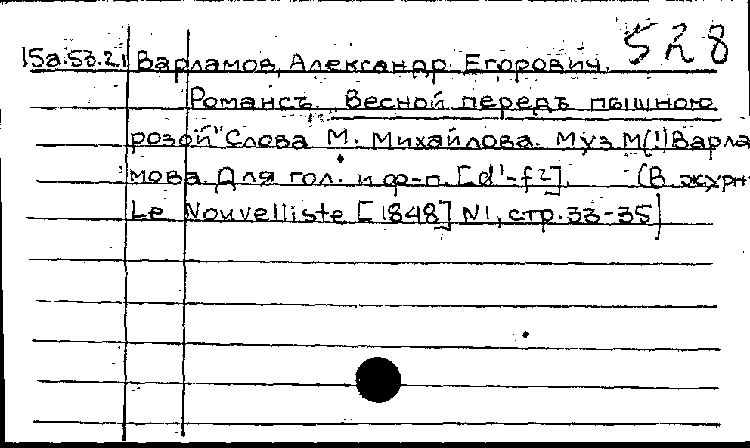 528
15а.53.21 Варламов, Александр Егорович.
Романсъ. "Весной передъ пышною
розой" Слова М. Михайлова. Муз М(!)Варла-
мова. Для гол. и ф-п. [d¹-f²]. (В журн.
Le Nouvelliste [1848] N1, стр. 33-35)